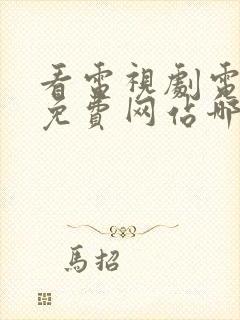 看電視劇電
免費网佔哪
馬招